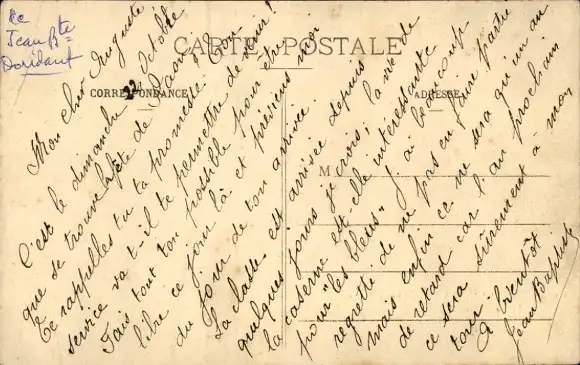 de
Jean Bte
Doridant
CARTE POSTALE
CORRESPONDANCE
ADRESSE
M
Mon cher Auguste
C'est le dimanche 22 Octobre
que se trouve la fête de
Te rappelles-tu ta promesse? Ton
service va t-il te permettre de venir?
Fais tout ton possible pour être
libre ce jour là et préviens moi
du jour de ton arrivée.
La classe est arrivée depuis
quelques jours je crois; la vie de
la caserne est-elle intéressante
pour "les bleus". J'ai beaucoup
regretté de ne pas en faire partie
mais enfin ce ne sera qu'un an
de retard car l'an prochain
ce sera sûrement à mon
tour. A bientôt
Jean Baptiste